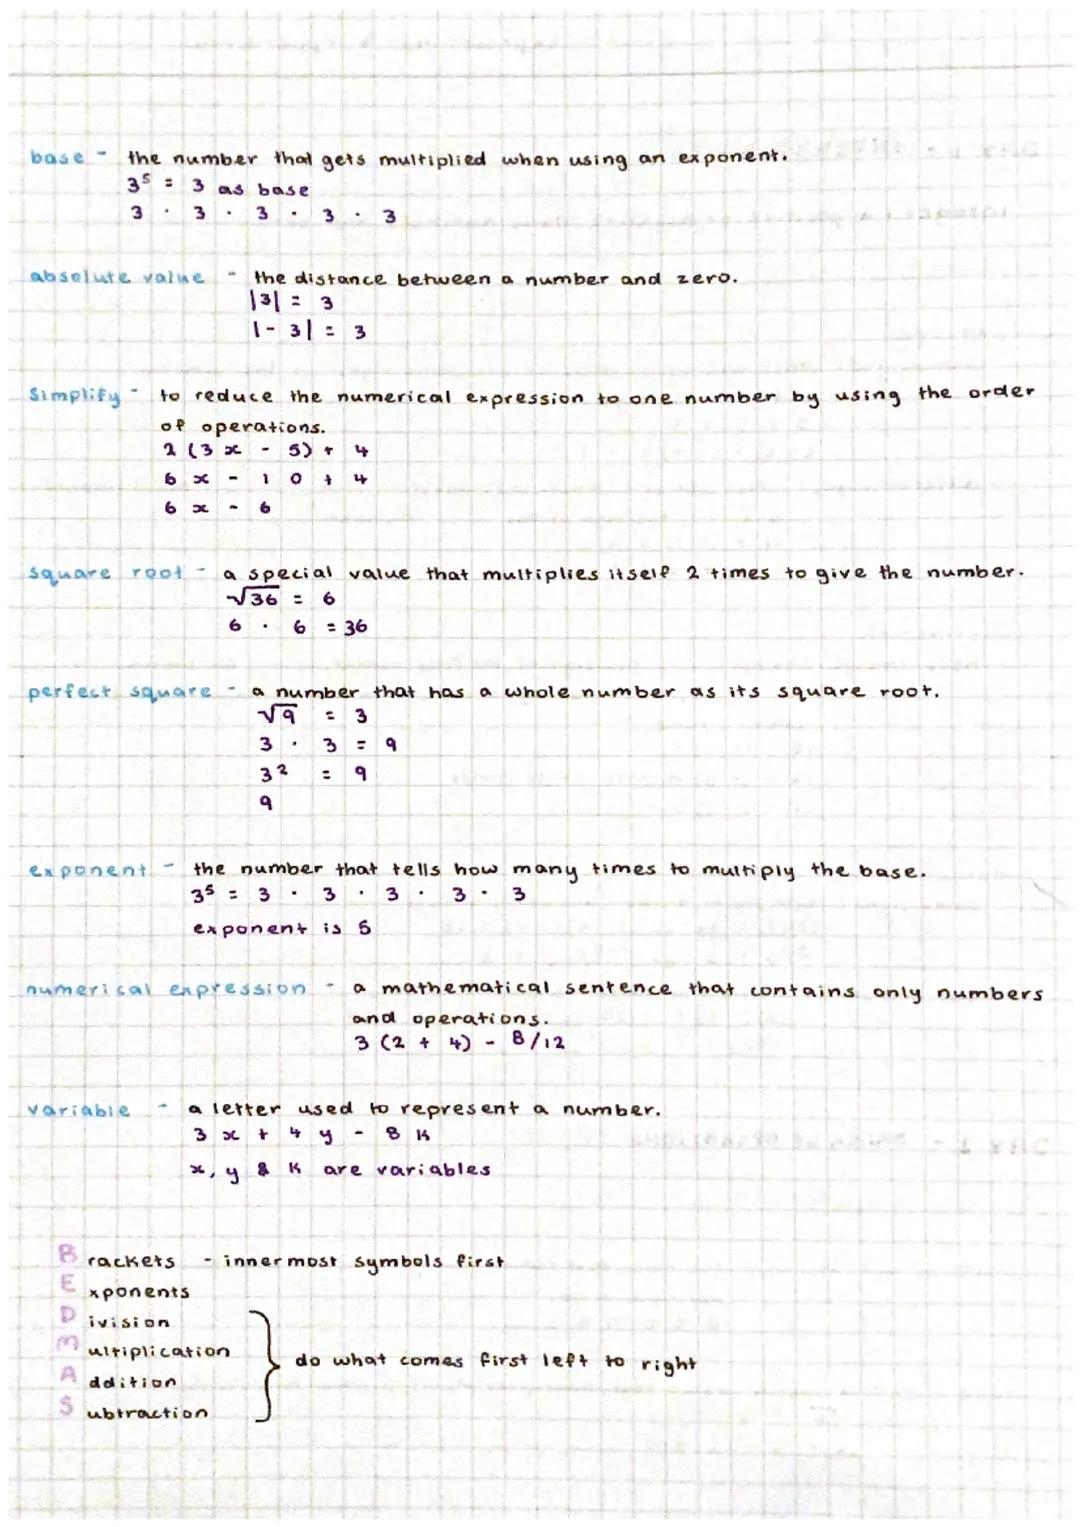 base - the number that gets multiplied when using an exponent.
3⁵ = 3 as base
3 · 3 · 3 · 3 · 3
absolute value - the distance between a number and zero.
|3| = 3
|-3| = 3
Simplify - to reduce the numerical expression to one number by using the order
of operations.
2 (3x - 5) + 4
6x - 10 + 4
6x - 6
square root - a special value that multiplies itself 2 times to give the number.
√36 = 6
6 · 6 = 36
perfect square - a number that has a whole number as its square root.
√9 = 3
3 · 3 = 9
3² = 9
9
exponent - the number that tells how many times to multiply the base.
3⁵ = 3 · 3 · 3 · 3 · 3
exponent is 5
numerical expression - a mathematical sentence that contains only numbers
and operations.
3 (2 + 4) - 8/12
variable - a letter used to represent a number.
3x + 4y - 8K
x, y & K are variables
Brackets - innermost symbols first
Exponents
Division
multiplication
Addition
Subtraction
do what comes first left to right